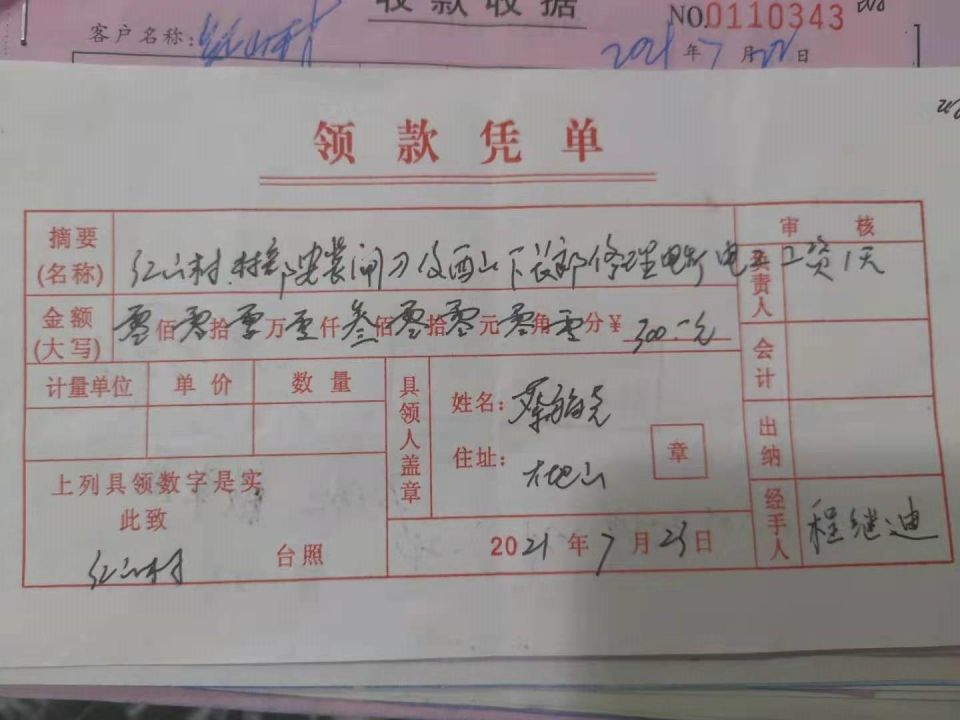 收款收据
NO.0110343
客户名称:红山村
2021年7月22日
领款凭单
摘要
(名称)
红山村.村部安装闸刀及西山下长郎修理电 电工工资1天
审核
负责人
金额
(大写)
零佰零拾零万零仟叁佰零拾零元零角零分¥300.00元
会计
计量单位 单价 数量
具领人盖章
姓名:
住址:
大地山
章
出纳
上列具领数字是实
此致
红山村 台照
2021年7月23日
经手人
程继迪